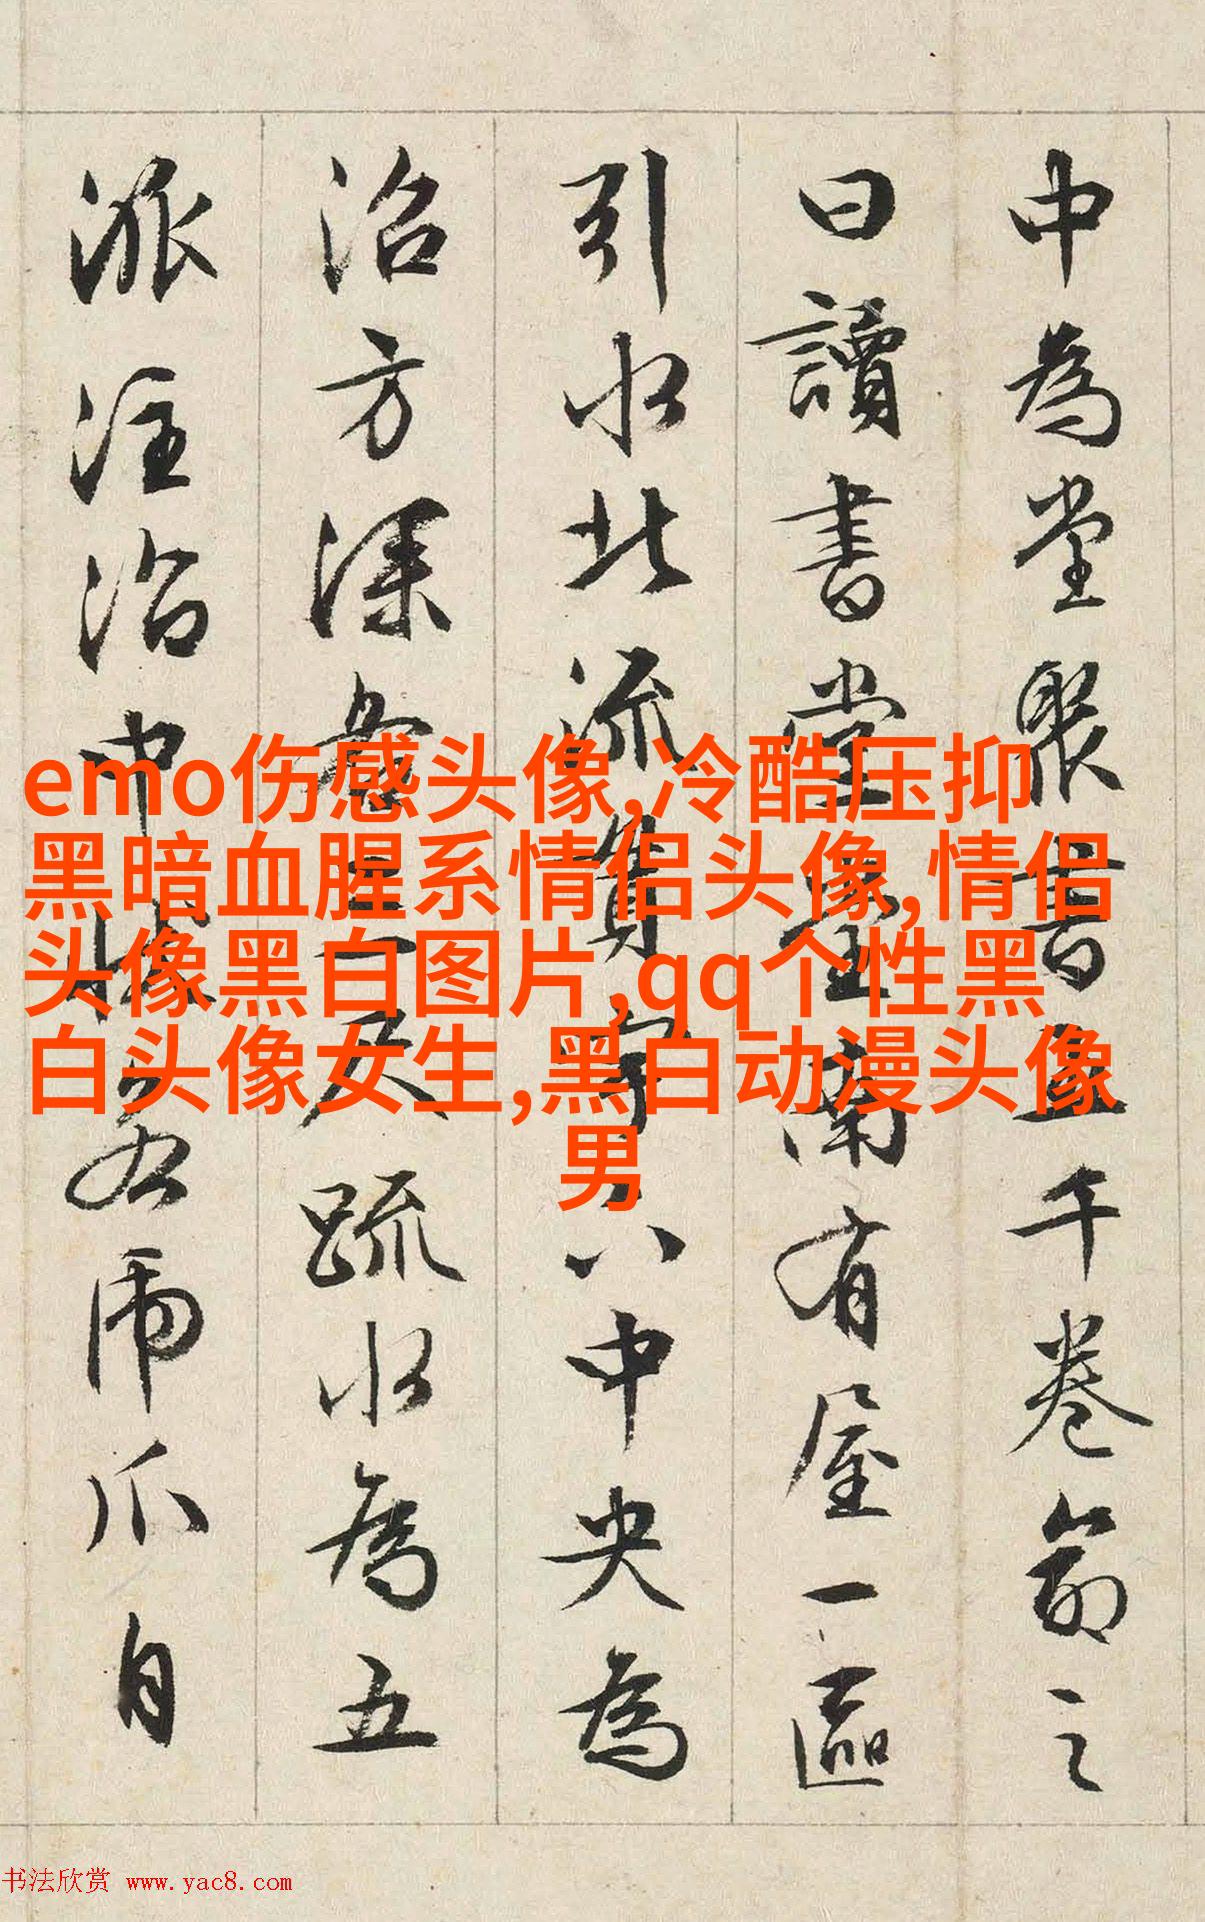 中為堂聚書五千卷命之
曰讀書堂堂南有屋一區
引水北流貫宇下中央為
沼方深各三尺疏水為五
派注沼中狀若虎爪自
emo伤感头像,冷酷压抑
黑暗血腥系情侣头像,情侣
头像黑白图片,qq个性黑
白头像女生,黑白动漫头像
男
书法欣赏 www.yac8.com